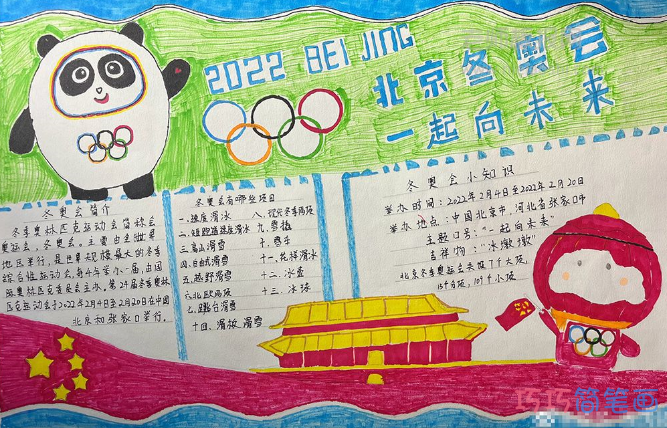 2022 BEI JING
北京冬奥会
一起向未来
冬奥会简介
冬季奥林匹克运动会简称冬
奥运会、冬奥会。主要由全世界
地区举行，是世界规模最大的冬季
综合性运动会，每4年举办一届，由国
际奥林匹克委员会主办。第24届冬季奥林
匹克运动会于2022年2月4日至2月20日在中国
北京和张家口举行。
冬奥会有哪些项目
一、速度滑冰
二、短跑道速度滑冰
三、高山滑雪
四、自由式滑雪
五、越野滑雪
六、北欧两项
七、跳台滑雪
八、现代冬季两项
九、雪橇
十、雪车
十一、花样滑冰
十二、冰壶
十三、冰球
十四、滑板滑雪
冬奥会小知识
举办时间：2022年2月4日至2022年2月20日
举办地点：中国北京市、河北省张家口市
主题口号："一起向未来"
吉祥物："冰墩墩"
北京冬季奥运会共设7个大项，
15个分项，109个小项。
巧巧简笔画